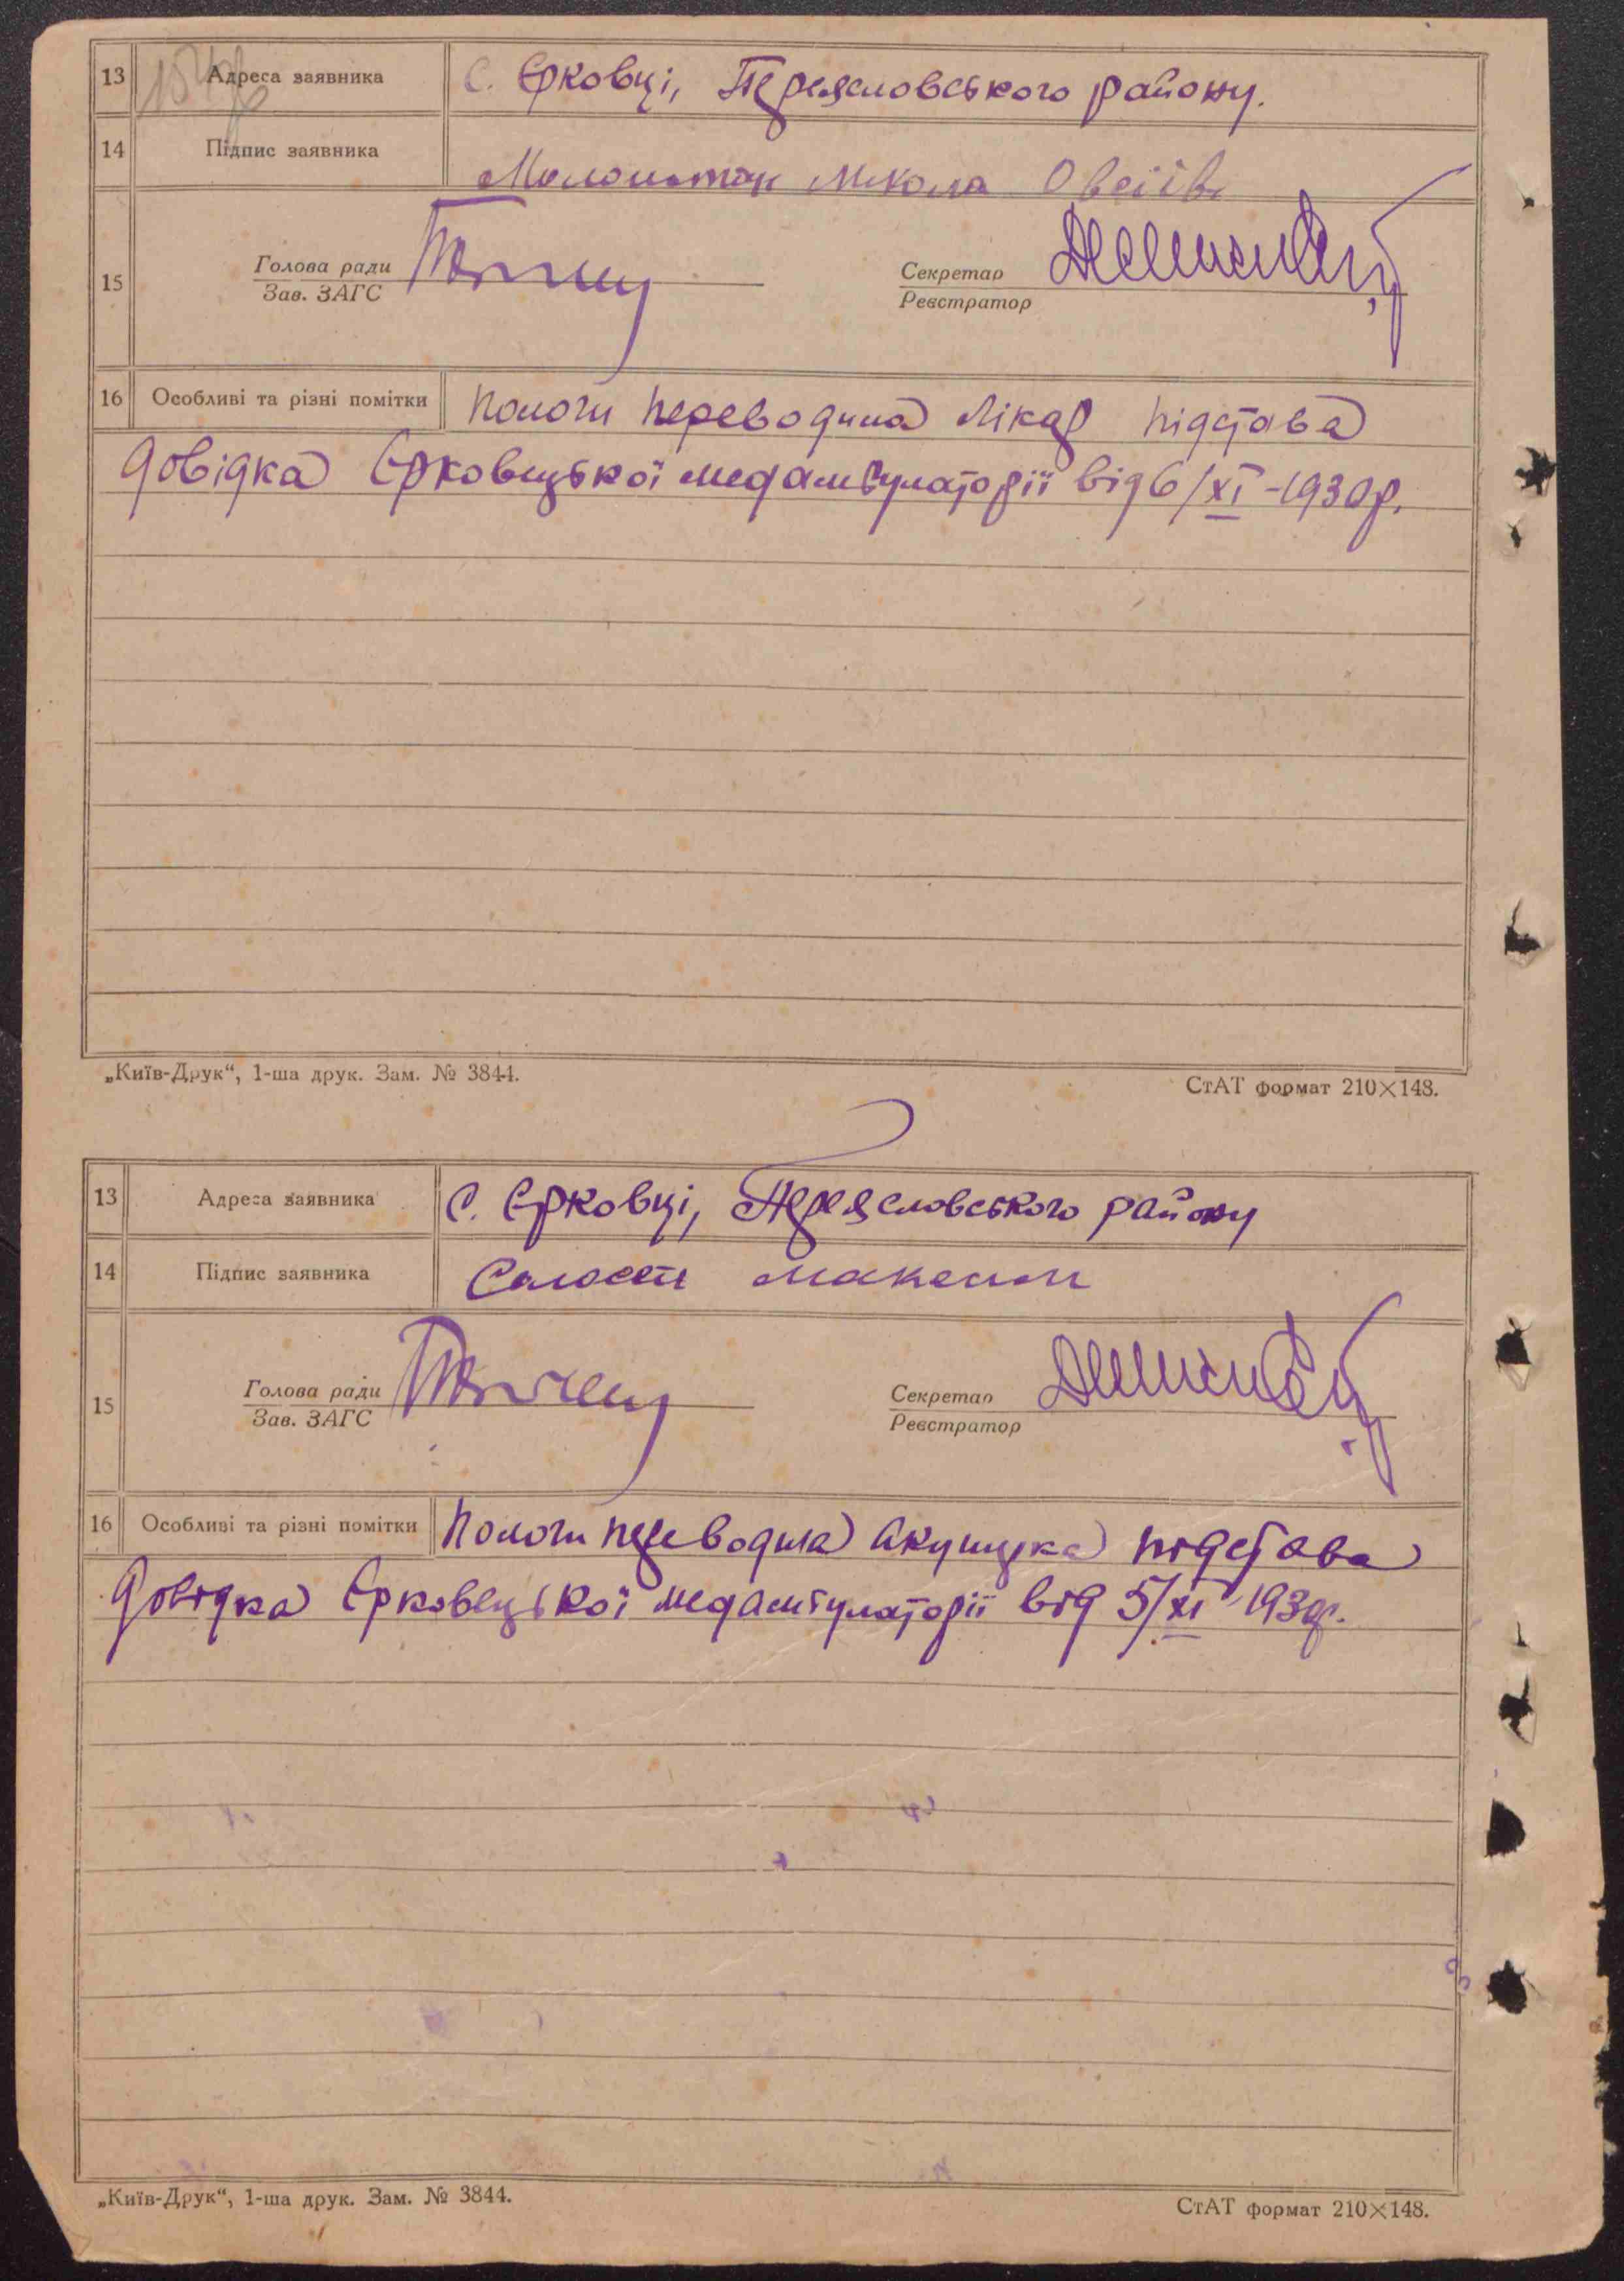 13 Адреса заявника С. Єрковці, Переяславського району.
14 Підпис заявника Микола Овсіїв
15 Голова ради Секретар
Зав. ЗАГС Реєстратор
16 Особливі та різні помітки Пологи переводила лікар підстава
довідка Єрковецької медамбулаторії від 6/XI-1930р.
„Київ-Друк“, 1-ша друк. Зам. № 3844. СтАТ формат 210×148.
13 Адреса заявника С. Єрковці, Переяславського району
14 Підпис заявника Максим
15 Голова ради Секретар
Зав. ЗАГС Реєстратор
16 Особливі та різні помітки Пологи переводила акушерка підстава
довідка Єрковецької медамбулаторії від 5/XI 1930р.
„Київ-Друк“, 1-ша друк. Зам. № 3844. СтАТ формат 210×148.